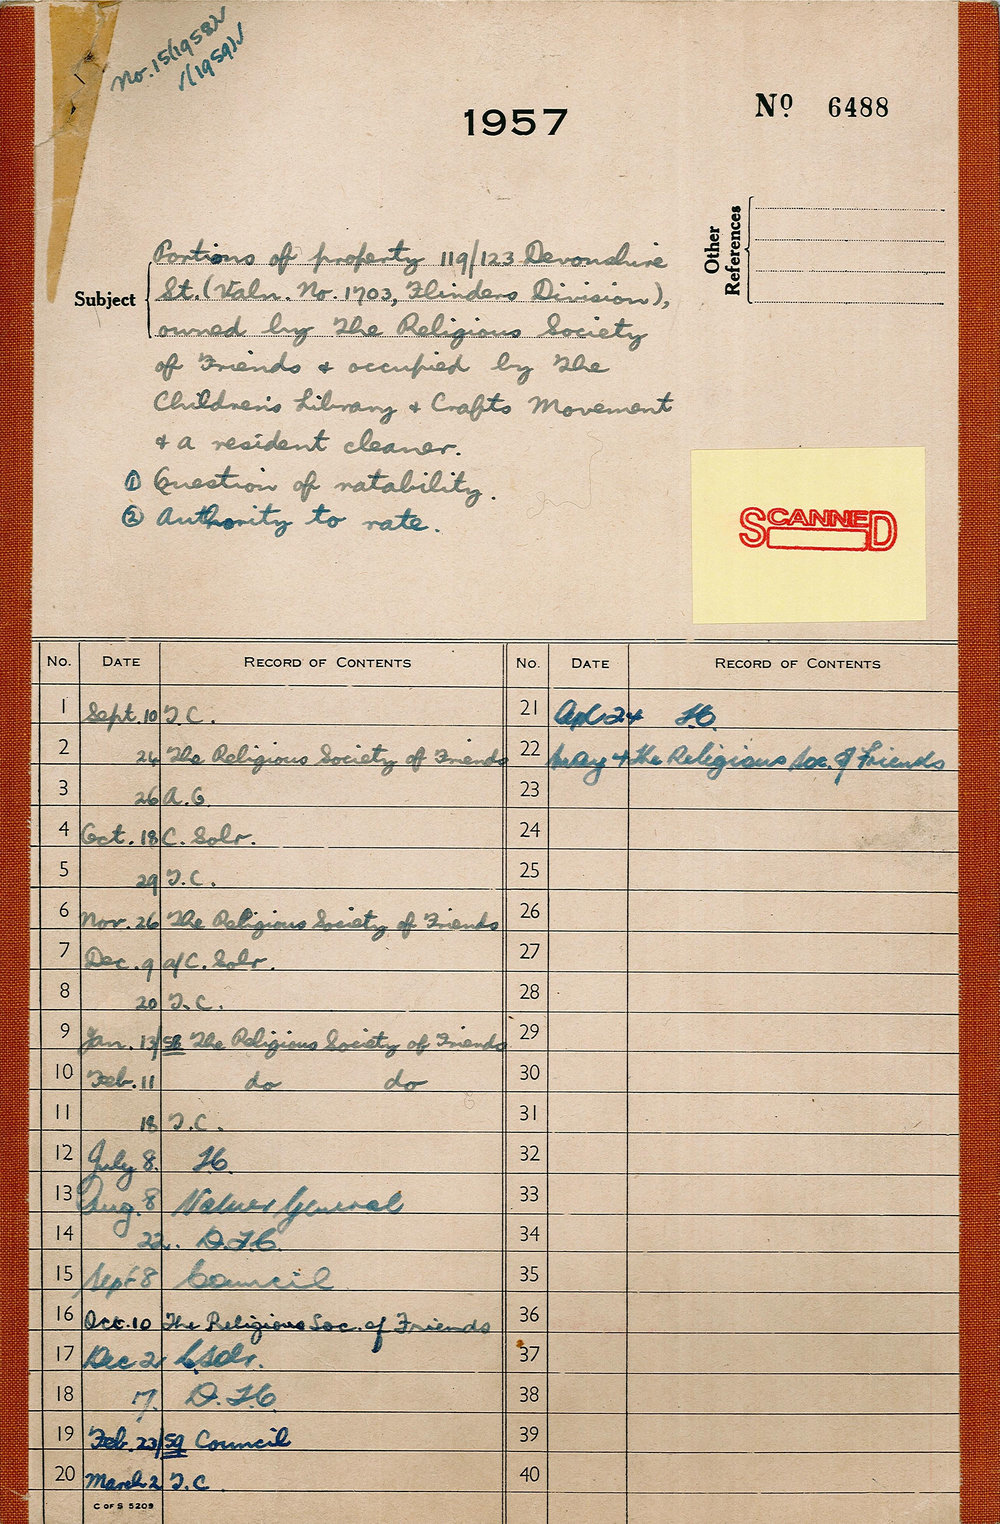 No. 15/1958
/(1959)
1957
No 6488
Other
References
Subject
Portions of property 119/123 Devonshire
St. (Valn. No. 1703, Flinders Division),
owned by The Religious Society
of Friends & occupied by The
Children's Library & Crafts Movement
& a resident cleaner.
① Question of ratability.
② Authority to rate.
SCANNED
No. DATE RECORD OF CONTENTS
1 Sept. 10 T.C.
2 24 The Religious Society of Friends
3 26 A.G.
4 Oct. 18 C. Solr.
5 29 T.C.
6 Nov. 26 The Religious Society of Friends
7 Dec. 9 a/C. Solr.
8 20 T.C.
9 Jan. 13/58 The Religious Society of Friends
10 Feb. 11 do do
11 18 T.C.
12 July 8.
13 Aug. 8 Valuer General
14 22.
15 Sept 8 Council
16 Oct. 10 The Religious Soc. of Friends
17 Dec 2 C Solr.
18 7.
19 Feb. 23/59 Council
20 March 2 T.C.
C OF S 5209
No. DATE RECORD OF CONTENTS
21 Apl 24
22 May 4 The Religious Soc. of Friends
23
24
25
26
27
28
29
30
31
32
33
34
35
36
37
38
39
40